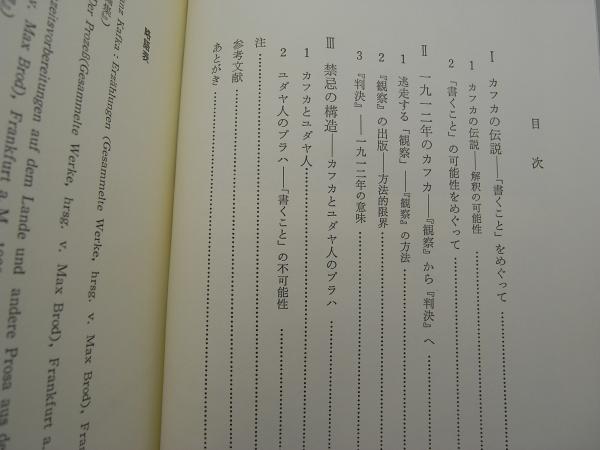 目次
Ⅰ カフカの伝説——「書くこと」をめぐって
1 カフカの伝説——解釈の可能性
2 「書くこと」の可能性をめぐって
Ⅱ 一九一二年のカフカ——『観察』から『判決』へ
1 逃走する「観察」——『観察』の方法
2 『観察』の出版——方法的限界
3 『判決』——一九一二年の意味
Ⅲ 禁忌の構造——カフカとユダヤ人のプラハ
1 カフカとユダヤ人
2 ユダヤ人のプラハ——「書くこと」の不可能性
注
参考文献
あとがき
anz Kafka : Erzählungen (Gesammelte Werke, hrsg. v. Max Brod), Fra
Der Prozeß(Gesammelte Werke, hrsg. v. Max Brod), Frankfurt a.
zeitsvorbereitungen auf dem Lande und andere Prosa aus de
v. Max Brod), Frankfurt a. M.